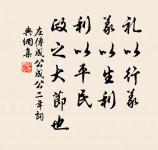 礼以行义
义以生利
利以平民
政之大节也
左传成公成公二年词
典网集